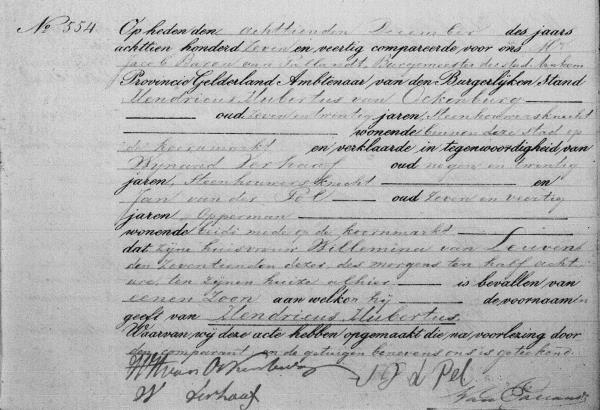 No 554
Op heden den achttienden December des jaars
achttien honderd Zeven en veertig compareerde voor ons Mr
Jacob Baron van Burgemeester der stad
Provincie Gelderland Ambtenaar van den Burgerlijken Stand
Hendricus Hubertus van Ockenburg
oud Zeven en twintig jaren, Steenhouwersknecht
wonende binnen deze stad op
de koornmarkt en verklaarde in tegenwoordigheid van
Wijnand Verhaaf oud negen en twintig
jaren, Steenhouwersknecht en
Jan van der Pol oud Zeven en veertig
jaren Opperman
wonende beide mede op de koornmarkt
dat zijne huisvrouw Willemina van Leuven
den Zeventienden dezer, des morgens ten half acht
ure, ten zijnen huize alhier is bevallen van
eenen Zoon aan welken hij de voornaamen
geeft van Hendricus Hubertus
Waarvan wij deze acte hebben opgemaakt die na voorlezing door
den comparant en de getuigen benevens ons is geteekend.
HH van Ockenburg J v d Pol
W Verhaaf